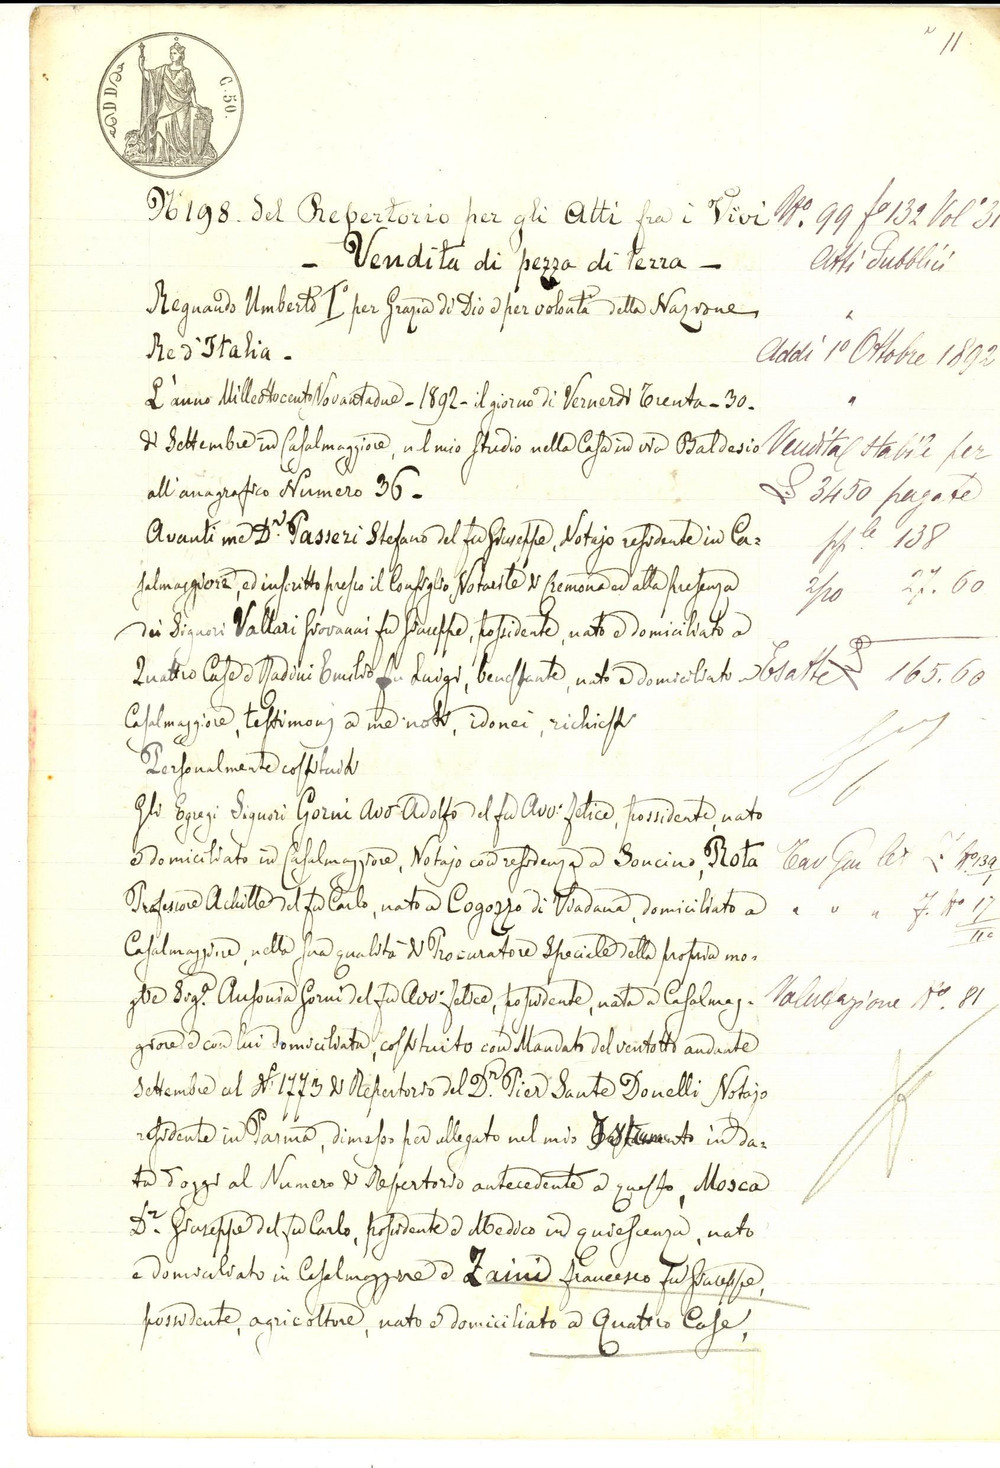 11
C. 50.
N° 198. del Repertorio per gli Atti fra i Vivi
- Vendita di pezza di terra -
Regnando Umberto I° per Grazia di Dio e per volontà della Nazione
Re d'Italia -
L'anno Milleottocento Novantadue - 1892 - il giorno di Venerdì Trenta - 30 -
di Settembre in Casalmaggiore, nel mio Studio nella Casa in via Baldesio
all'anagrafico Numero 36 -
Avanti me Dr. Passeri Stefano del fu Giuseppe, Notajo residente in Ca=
salmaggiore, ed inscritto presso il Consiglio Notarile di Cremona ed alla presenza
dei Signori Vallari Giovanni fu Giuseppe, possidente, nato e domiciliato a
Quattro Case e Nadini Emilio fu Luigi, benestante, nato e domiciliato a
Casalmaggiore, testimonj a me noti, idonei, richiesti
Personalmente costituiti
Gli Egregi Signori Gorni Avv. Adolfo del fu Avv. Felice, possidente, nato
e domiciliato in Casalmaggiore, Notajo con residenza a Soncino, Rota
Professore Achille del fu Carlo, nato a Cogozzo di Viadana, domiciliato a
Casalmaggiore, nella sua qualità di Procuratore Speciale della propria mo=
glie Sigª Ausonia Gorni del fu Avv. Felice, possidente, nata a Casalmag=
giore e con lui domiciliata, costituito con Mandato del ventotto andante
Settembre al N° 1773 di Repertorio del Dr. Pier Sante Donelli Notajo
residente in Parma, dimesso per allegato nel mio Istrumento in da=
ta d'oggi al Numero di Repertorio antecedente a questo, Mosca
Dr. Giuseppe del fu Carlo, possidente e Medico in quiescenza, nato
e domiciliato in Casalmaggiore e Zaini Francesco fu Giuseppe,
possidente, agricoltore, nato e domiciliato a Quattro Case,
N°. 99 f° 132 Vol° 31
Atti Pubblici
Addì 1° Ottobre 1892
Vendita stabile per
£ 3450 pagate
pple 138
2/10 27.60
Esatte £ 165.60
N° 139
N° 17
Valutazione N°. 81